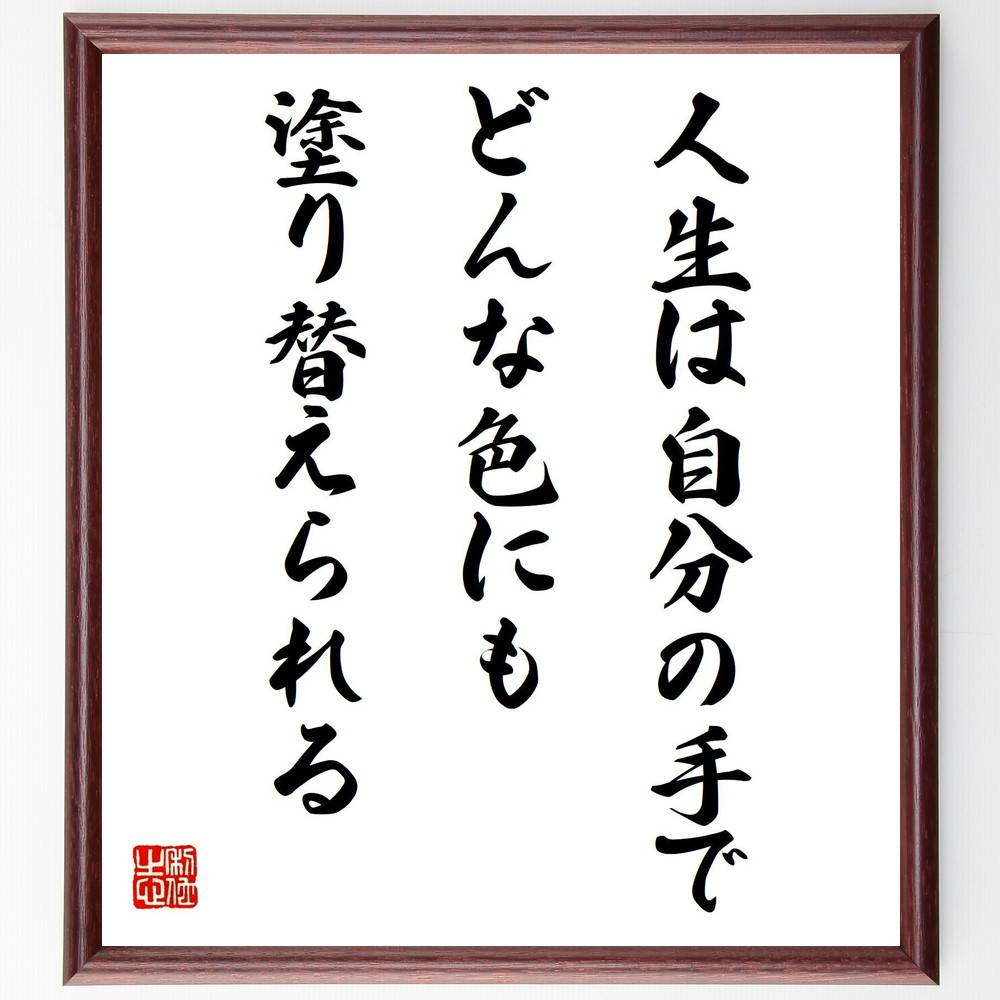 人生は自分の手で
どんな色にも
塗り替えられる